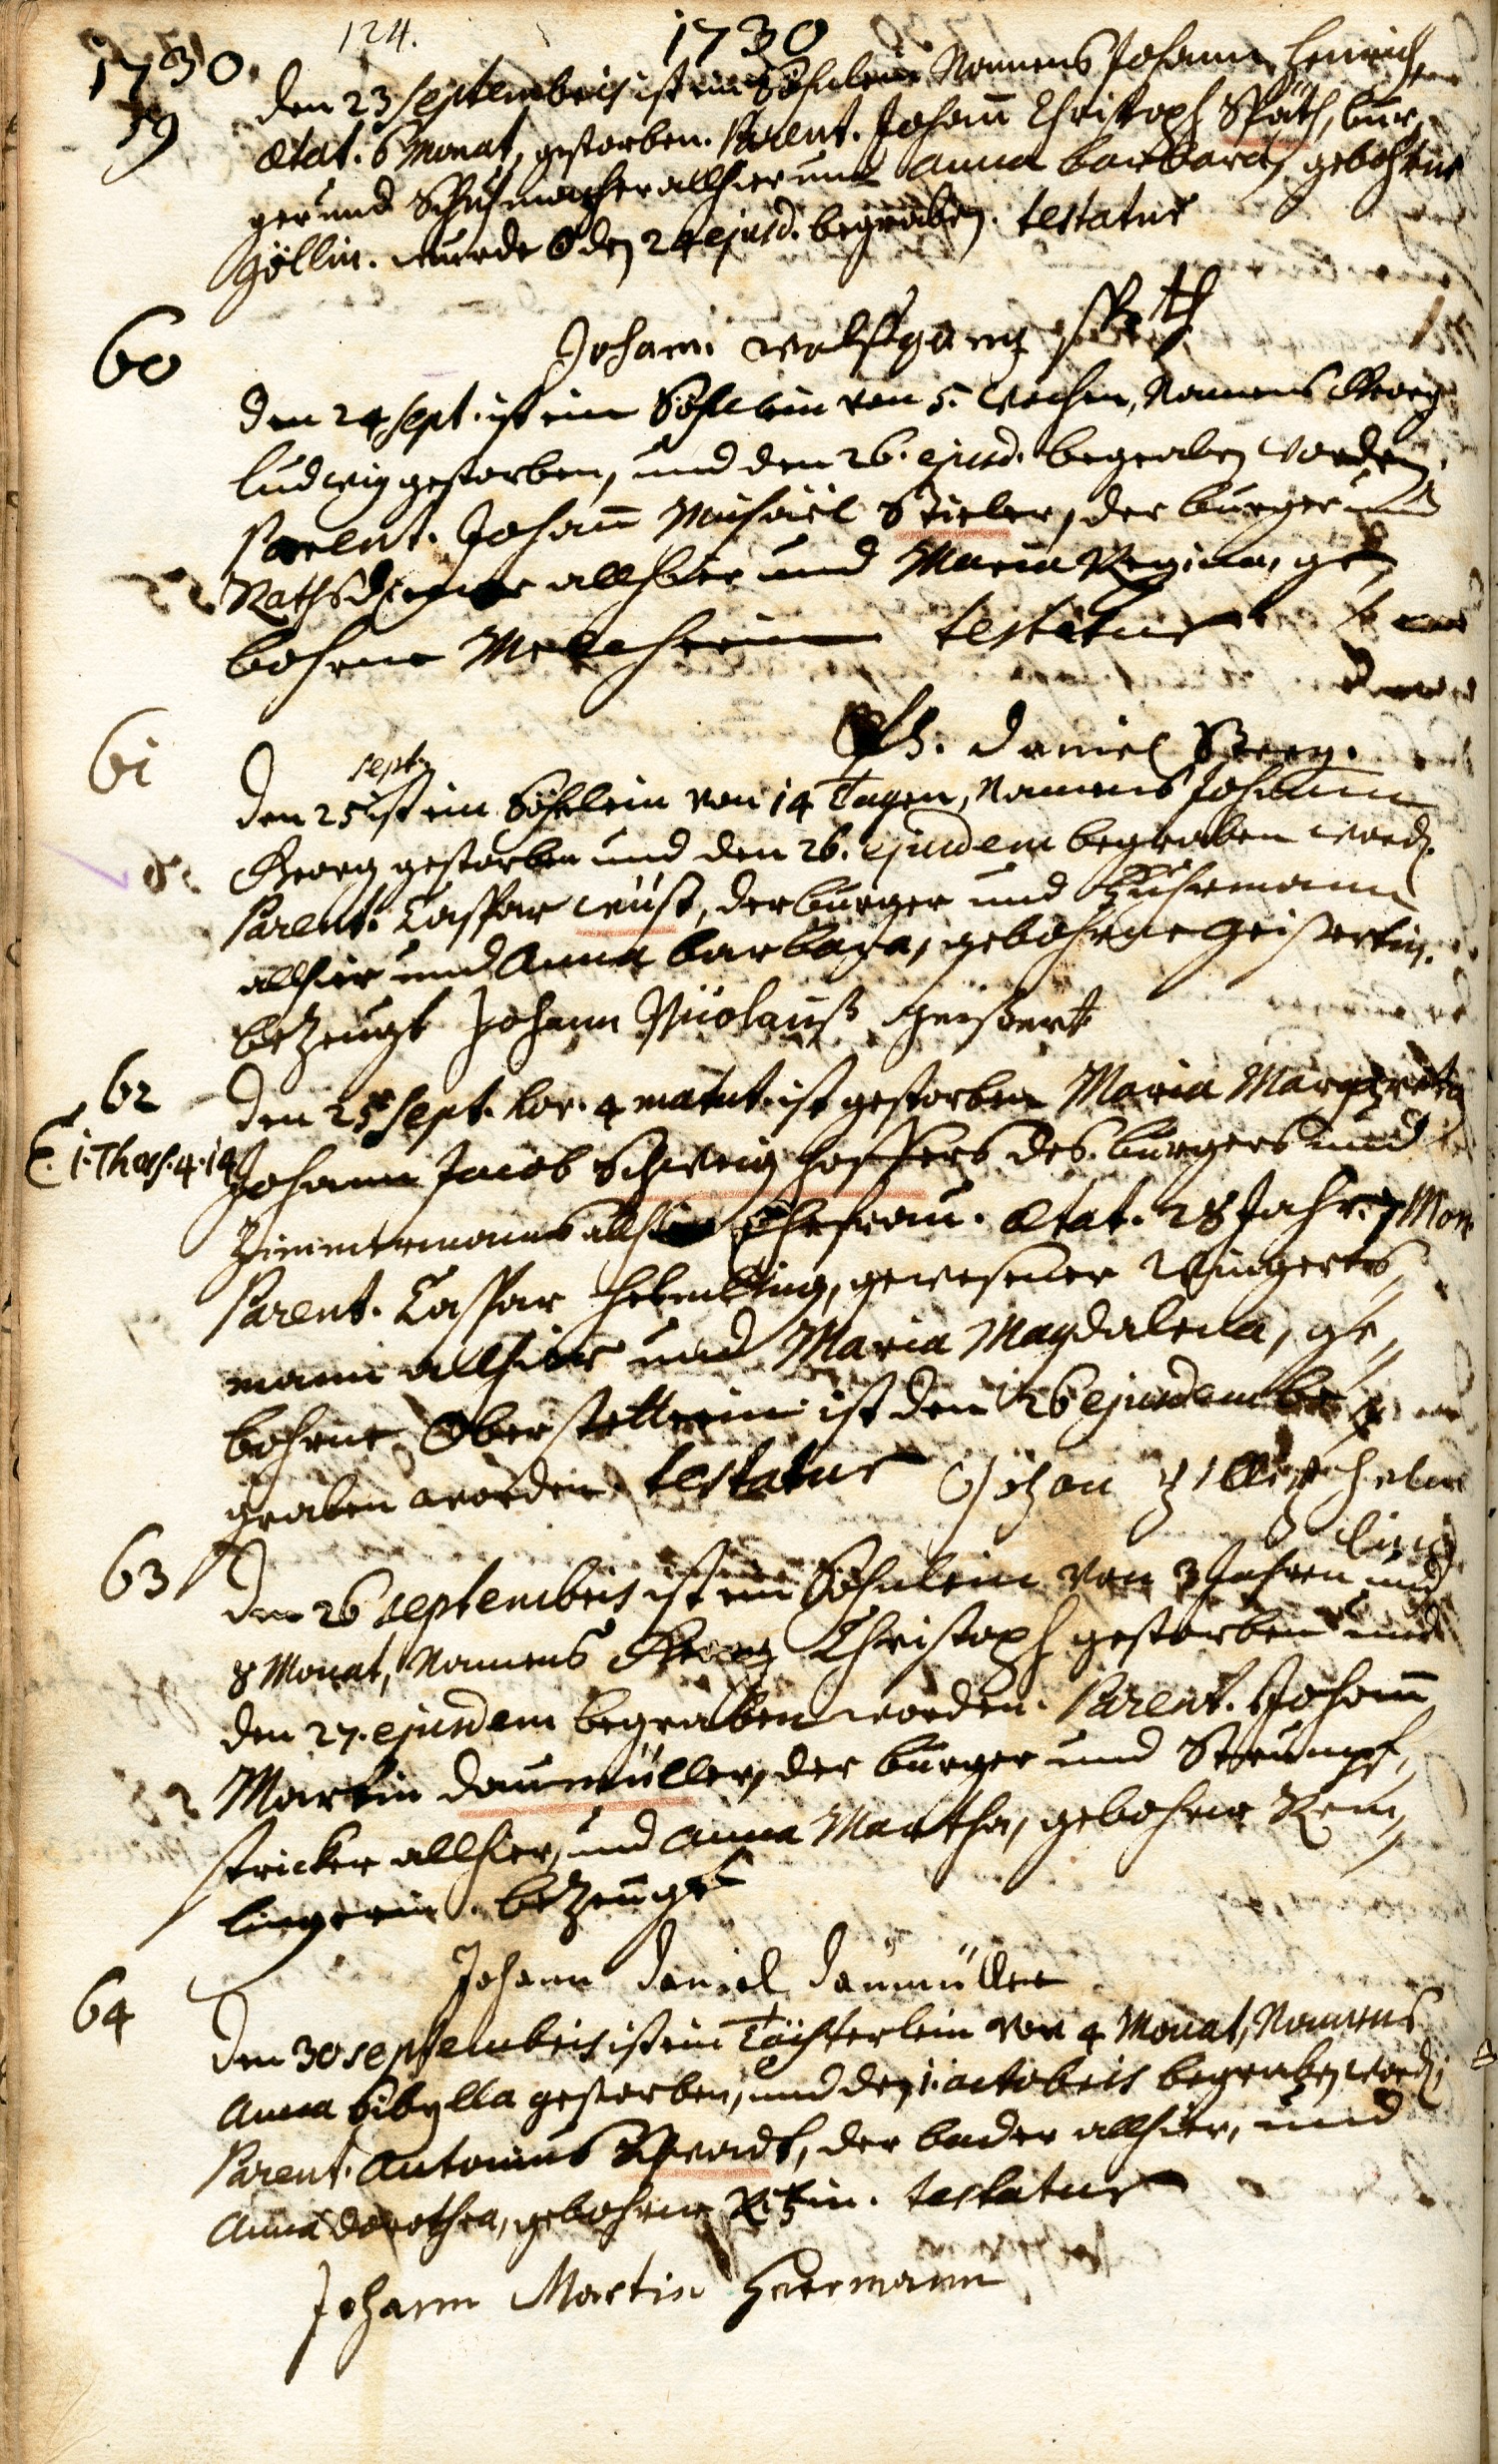 124.
1730
1730.
59
den 23 Septembris ist ein Söhnlein Nomens Johann Henrich
Ætat. 6 Monat, gestorben. Parent. Johan̄ Christoph Späth, bur,
ger und Schuhmacher allhier und Anna Barbara, gebohrne
Göllin. wurde den 24 ejusd. begraben. testatur
60
Johann wolfgang
den 24 Sept. ist ein Söhnlein von 5. Wochen, Namens Georg
Ludwig gestorben, und den 26. ejusd. begraben worden.
Parent. Johan̄ Michaël Stieler, der burger und
Rathsdiener allhier und Maria Regina, ge,
bohrne testatur
Daniel
61
den 25 sept. ist ein Söhnlein von 14 Tagen, Namens Johann
Georg gestorben und den 26. ejusdem begraben word.
Parent. Caspar Wüst, der burger und Fuhrmann
allhier und Anna Barbara, gebohrne Geißertin.
bezeugt Johann Nicolauß Geißert
62
E. 1. Thess. 4. 14
den 25 Sept. hor. 4 matut. ist gestorben Maria Margreta
Johann Jacob Schweighoffers des burgers und
Zimmermanns allhier Ehefrau. Ætat. 28 Jahr. 7 Mon
Parent. Caspar Helmling, gewesener Wingerts,
mann allhier und Maria Magdalena, ge,
bohrne Oberstetterin ist den 26 ejusdem be
graben worden. testatur helm
ling
63
den 26 Septembris ist ein Söhnlein von 3 Jahren und
8 Monat, Namens Georg Christoph gestorben und
den 27. ejusdem begraben worden. Parent. Johan̄
Martin Daumüller, der burger und Strumpf,
stricker allhier, und Anna Martha, gebohrne Rem,
lingerin. bezeugt
Johann Daniel Daumüller
64
den 30 Septembris ist ein Töchterlein von 4 Monat, Namens
Anna Sibylla gestorben, und den 1. octobris begraben word.
Parent. Antonius, der bader allhier, und
Anna Dorothea, gebohrne testatur
Johann Martin Heermann